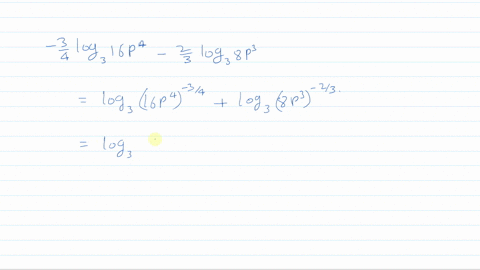 -3/4 log₃ 16p⁴ - 2/3 log₃ 8p³
= log₃ (16p⁴)^-3/4 + log₃ (8p³)^-2/3.
= log₃